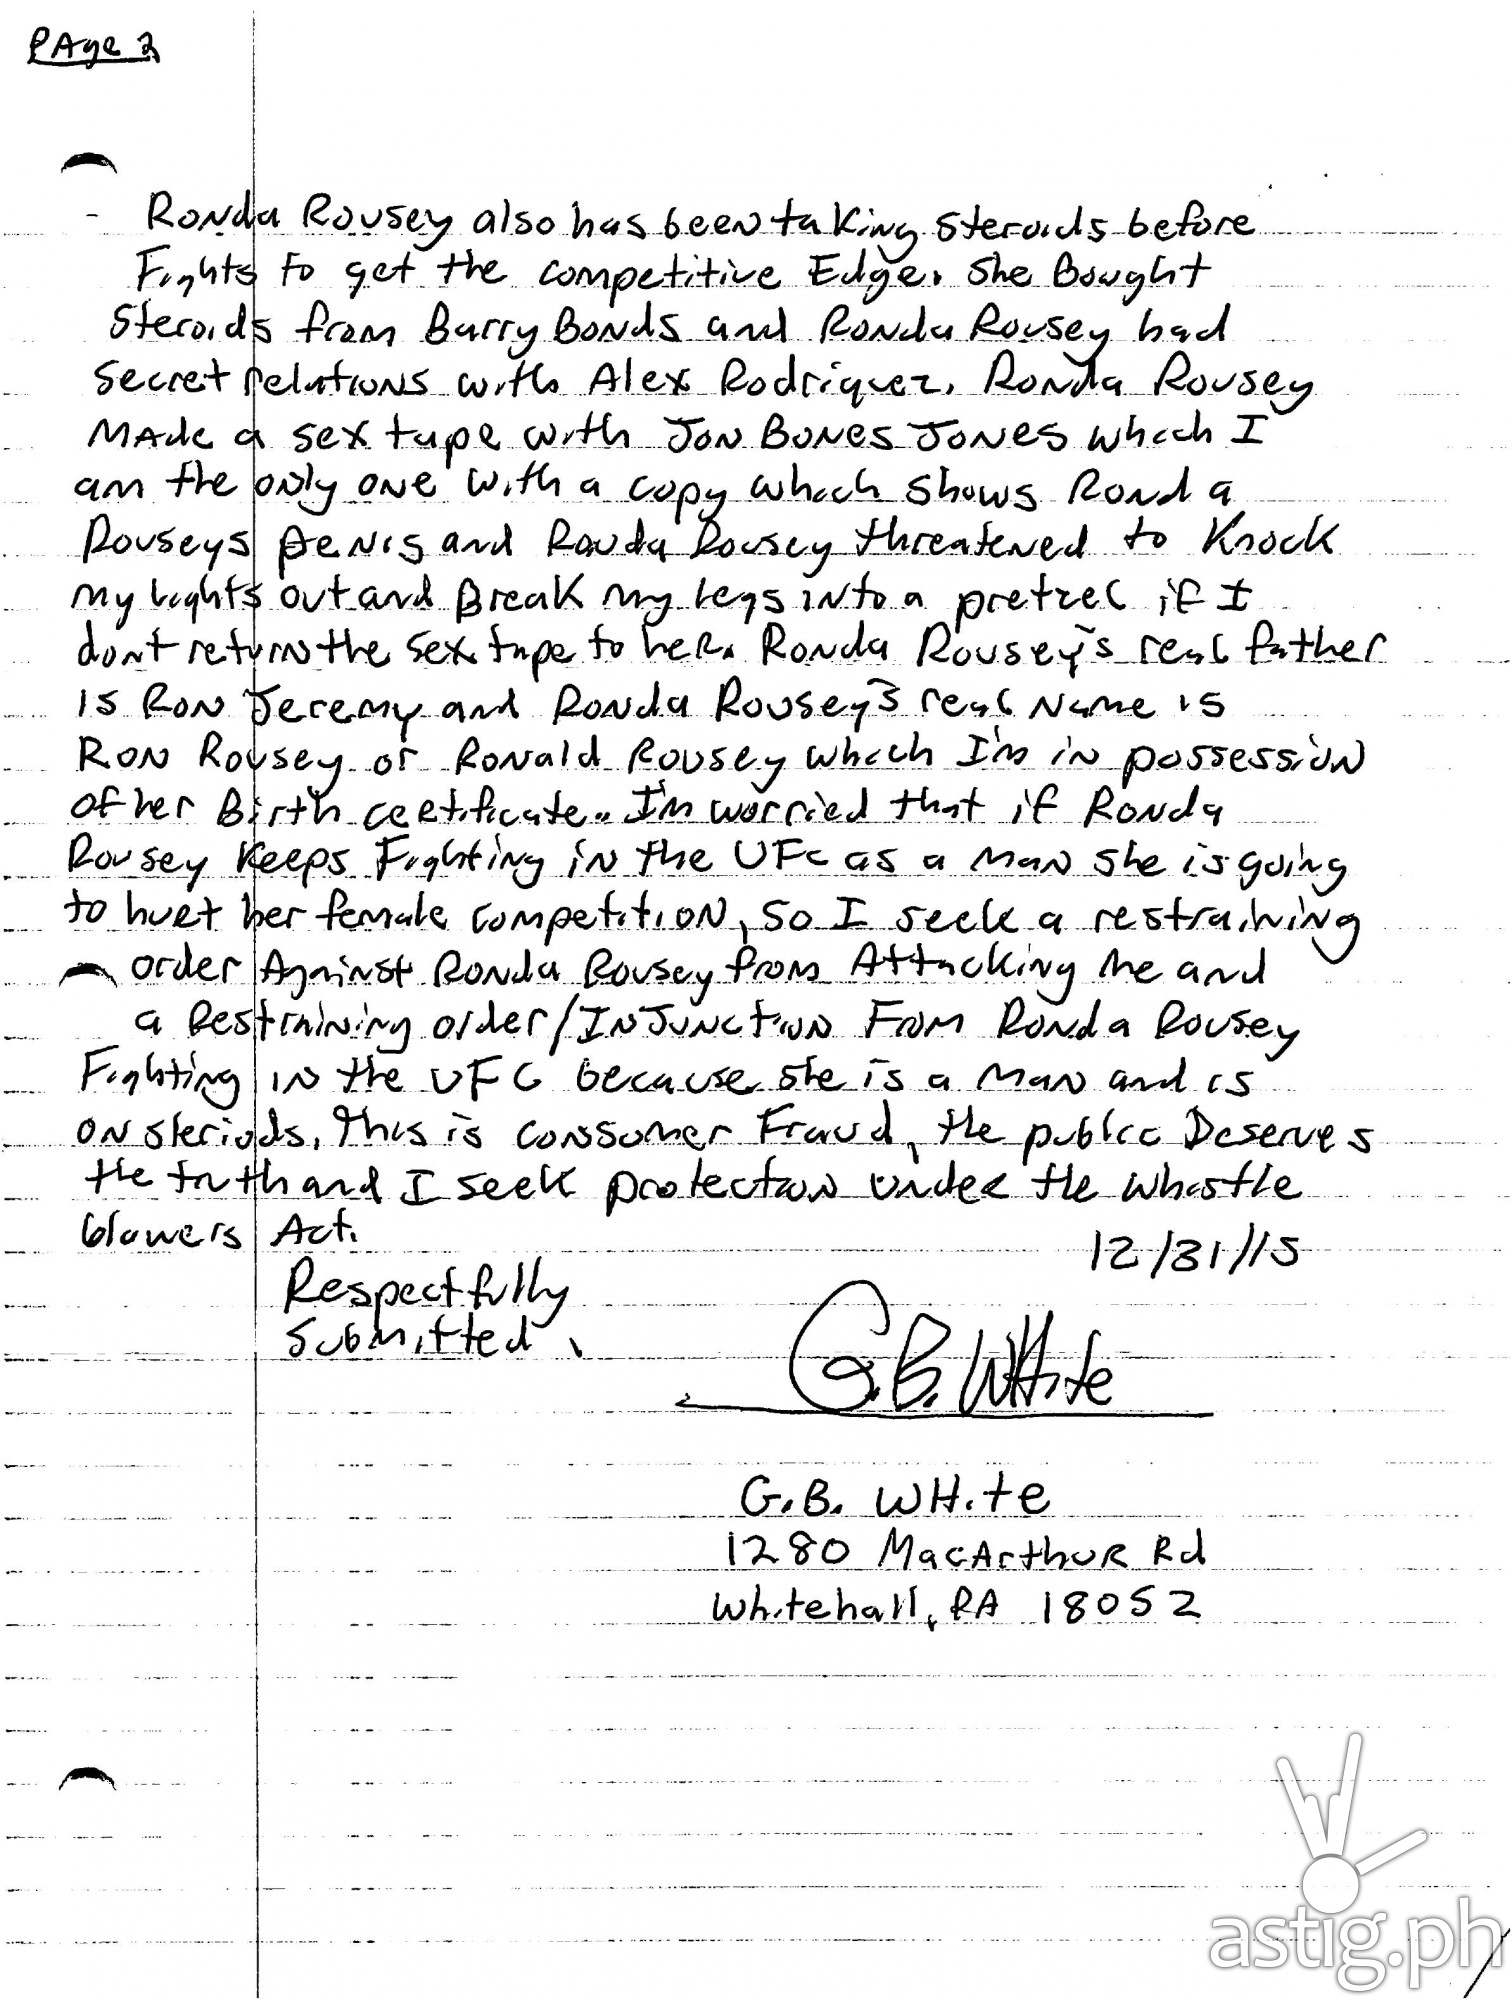 PAge 2
- Ronda Rousey also has been taking steroids before
Fights to get the competitive Edge. She Bought
Steroids from Barry Bonds and Ronda Rousey had
secret relations with Alex Rodriquez. Ronda Rousey
MAde a sex tape with Jon Bones Jones which I
am the only one with a copy which shows Ronda
Rouseys penis and Ronda Rousey threatened to Knock
my lights out and Break my legs into a pretzel if I
dont return the sex tape to her. Ronda Rousey's real father
is Ron Jeremy and Ronda Rousey's real Name is
Ron Rousey or Ronald Rousey which I'm in possession
of her Birth certificate.. I'm worried that if Ronda
Rousey Keeps Fighting in the UFC as a Man she is going
to hurt her female competition, So I seek a restraining
order Against Ronda Rousey from Attacking me and
a Restraining order/Injunction From Ronda Rousey
Fighting in the UFC because she is a Man and is
on steriods. This is Conssumer Fraud, the public Deserves
the truth and I seek protection under the whistle
blowers Act.
12/31/15
Respectfully
Submitted,
G.B. White
G.B. WHite
1280 MacArthur Rd
Whitehall, PA 18052
astig.ph